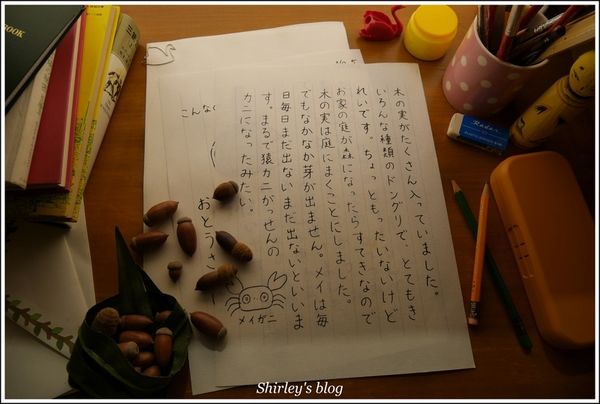 木の実がたくさん入っていました。
いろんな種類のドングリで、とてもき
れいです。ちょっともったいないけど
お家の庭が森になったらすてきなので
木の実は庭にまくことにしました。
でもなかなか芽が出ません。メイは毎
日毎日まだ出ないまだ出ないといいま
す。まるで猿カニがっせんの
カニになったみたい。
メイガニ
こんな
おとうさ
BOOK
Radar
Shirley's blog